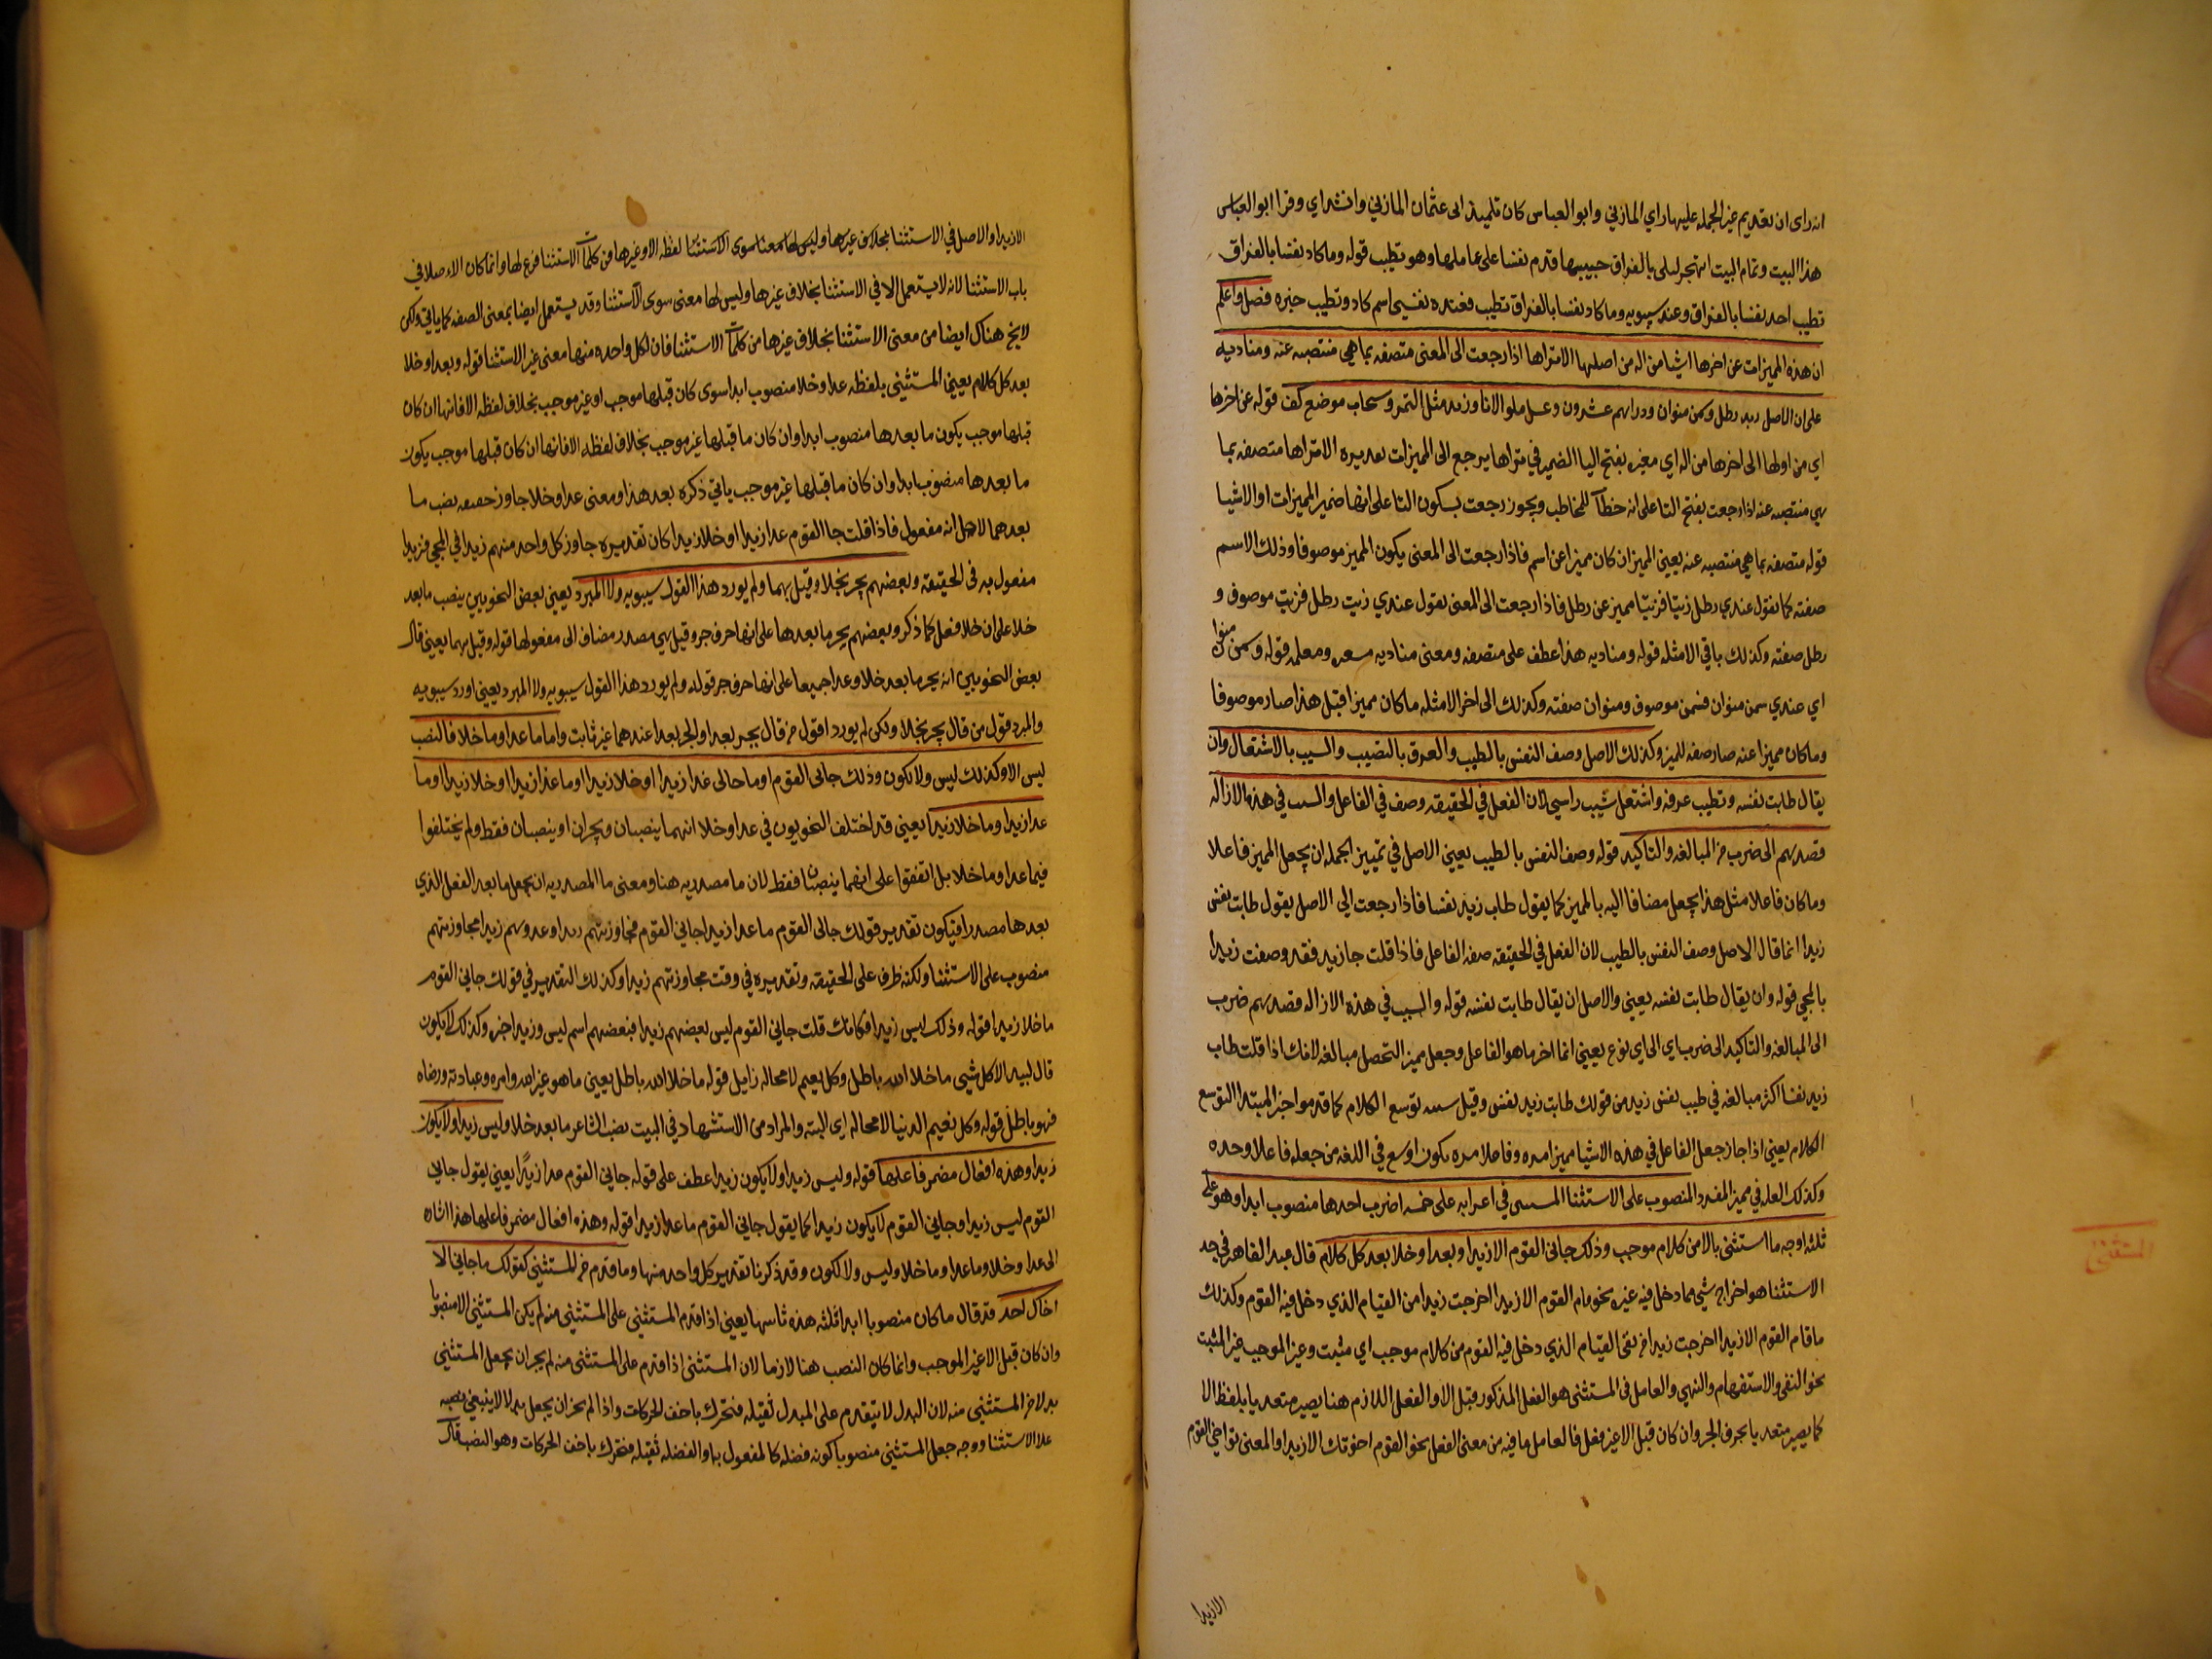 انه راى ان تقديم غير الجمله عليها راي المازني وابو العباس كان تلميذ ابى عثمان المازني وانشد اي وقرا ابو العباس
هذا البيت وتمام البيت اتهجر ليلى بالفراق حبيبها قدم نفسا على عاملها وهو تطيب قوله وما كاد نفسا بالفراق
تطيب احد نفسا بالفراق وعند سيبويه وما كاد نفسا بالفراق تطيب فعنده نفسي اسم كاد وتطيب خبره فصل واعلم
ان هذه المميزات عن اخرها اشيا مزاله من اصلها الا تراها اذا رجعت الى المعنى متصفه بما هي منتصبه عنه ومناديه
على ان الاصل زيت رطل وسمن منوان ودراهم عشرون وعسل ملو الانا وزبد مثل التمر وسحاب موضع كف قوله عن اخرها
اي من اولها الى اخرها مزاله اي مغيره بفتح اليا الضمير في تراها يرجع الى المميزات تقديره الا تراها متصفه بما
هي منتصبه عنه اذا رجعت بفتح التا على انه خطاب للمخاطب ويجوز رجعت بسكون التا على انها ضمير المميزات او الاشيا
قوله متصفه بما هي منتصبه عنه يعني المميز ان كان مميزا عن اسم فاذا رجعت الى المعنى يكون المميز موصوفا وذلك الاسم
صفته كما تقول عندي رطل زيتا فزيتا مميز عن رطل فاذا رجعت الى المعنى تقول عندي زيت رطل فزيت موصوف و
رطل صفته وكذلك باقي الامثله قوله ومناديه هذا عطف على متصفه ومعنى مناديه مسعره ومعلمه قوله وسمن منوان
اي عندي سمن منوان فسمن موصوف ومنوان صفته وكذلك الى اخر الامثله ما كان مميزا قبل هذا صار موصوفا
وما كان مميزا عنه صار صفه للمميز وكذلك الاصل وصف النفس بالطيب والعرق بالتصبب والشيب بالاشتعال وان
يقال طابت نفسه وتصبب عرقه واشتعل شيب راسي لان الفعل في الحقيقه وصف في الفاعل والسبب في هذه الازاله
قصدهم الى ضرب من المبالغه والتاكيد قوله وصف النفس بالطيب يعني الاصل في تمييز الجمله ان يجعل المميز فاعلا
وما كان فاعلا مثل هذا يجعل مضافا اليه بالمميز كما يقول طاب زيد نفسا فاذا رجعت الى الاصل يقول طابت نفس
زيد انما قال الاصل وصف النفس بالطيب لان الفعل في الحقيقه صفه الفاعل فاذا قلت جا زيد فقد وصفت زيدا
بالمجي قوله وان يقال طابت نفسه يعني والاصل ان يقال طابت نفسه قوله والسبب في هذه الازاله قصدهم ضرب
الى المبالغه والتاكيد الى ضرب اي الى اي نوع يعني انما اخر ما هو الفاعل وجعل مميز التحصل مبالغه لانك اذا قلت طاب
زيد نفسا اكثر مبالغه في طيب نفس زيد من قولك طابت زيد نفس وقيل توسع الكلام كما قدموا خبر المبتدا التوسع
الكلام يعني اذا جاز جعل الفاعل في هذه الاشيا مميزا مره وفاعلا مره يكون اوسع في اللغه من جعله فاعلا وحده
وكذلك العله في مميز المفرد المنصوب على الاستثنا المستثنى في اعرابه على خمسه اضرب احدها منصوب ابدا وهو على
ثلثه اوجه ما استثنى بالا من كلام موجب وذلك جانى القوم الا زيدا وبعدا وخلا بعد كل كلام قال عبد القاهر في حد
الاستثنا هو اخراج شي مما دخل فيه غيره نحو قام القوم الا زيدا اخرجت زيدا من القيام الذي دخل فيه القوم وكذلك
ما قام القوم الا زيدا اخرجت زيدا من نفى القيام الذي دخل فيه القوم من كلام موجب اي مثبت وغير الموجب غير المثبت
نحو النفى والاستفهام والنهي والعامل فى المستثنى هو الفعل المذكور قبل الا والفعل اللازم هنا يصير متعديا بلفظ الا
كما يصير متعديا بحرف الجر وان كان قبل الا غير فعل فالعامل ما فيه من معنى الفعل نحو القوم اخوتك الا زيدا والمعنى تواخي القوم
الا زيدا
المستثنى
الا زيدا والاصل في الاستثنا بخلاف غيرها وليس لها معنا سوى الاستثنا لفظه الا وغيرها من كلمات الاستثنا فرع لها وانما كان الا اصلا في
باب الاستثنا لانه لا يستعمل الا في الاستثنا بخلاف غيرها وليس لها معنى سوى الاستثنا وقد يستعمل ايضا بمعنى الصفه كما ياتي ولكن
لا يخ هناك ايضا من معنى الاستثنا بخلاف غيرها من كلمات الاستثنا فان لكل واحده منها معنى غير الاستثنا قوله وبعدا وخلا
بعد كل كلام يعني المستثنى بلفظه عدا وخلا منصوب ابدا سوى كان قبلها موجب او غير موجب بخلاف لفظه الا فانها ان كان
قبلها موجب يكون ما بعدها منصوب ابدا وان كان ما قبلها غير موجب بخلاف لفظه الا فانها ان كان قبلها موجب يكون
ما بعدها منصوب ابدا وان كان ما قبلها غير موجب ياتي ذكره بعد هذا ومعنى عدا وخلا جاوز نصب ما
بعدهما لاجل انه مفعول فاذا قلت جا القوم عدا زيدا او خلا زيدا كان تقديره جاوز كل واحد منهم زيدا في المجي فزيدا
مفعول به فى الحقيقه وبعضهم يجر بخلا وقيل بهما ولم يورد هذا القول سيبويه ولا المبرد يعني بعض النحويين ينصب ما بعد
خلا على ان خلا فعل كما ذكر وبعضهم يجر ما بعدها على انها حرف جر وقيل هي مصدر مضاف الى مفعولها قوله وقيل بهما يعني قال
بعض النحويين انه يجر ما بعد خلا وعدا جميعا على انها حرف جر قوله ولم يورد هذا القول سيبويه ولا المبرد يعني اورد سيبويه
والمبرد قول من قال يجر بخلا ولكن لم يوردا قول من قال يجر بعدا والجر بعدا عندهما غير ثابت واما ما عدا وما خلا فالنصب
ليس الا وكذلك ليس ولا يكون وذلك جانى القوم او ما جانى عدا زيدا او خلا زيدا او ما عدا زيدا او خلا زيدا او ما
عدا زيدا وما خلا زيدا يعني قد اختلف النحويون في عدا وخلا انهما ينصبان ويجران او ينصبان فقط ولم يختلفوا
فيما عدا وما خلا بل اتفقوا على انهما ينصبان فقط لان ما مصدريه هنا ومعنى ما المصدريه ان يجعل ما بعد الفعل الذي
بعدها مصدرا فيكون تقدير قولك جانى القوم ما عدا زيدا جاني القوم مجاوزتهم زيدا وعدوهم زيدا مجاوزتهم
منصوب على الاستثنا ولكنه ظرف على الحقيقه وتقديره في وقت مجاوزتهم زيدا وكذلك التقدير في قولك جانى القوم
ما خلا زيدا قوله وذلك ليس زيدا فكانك قلت جانى القوم ليس بعضهم زيدا فبعضهم اسم ليس وزيدا خبره وكذلك لا يكون
قال لبيد الا كل شي ما خلا الله باطل وكل نعيم لا محاله زايل قوله ما خلا الله باطل يعني ما هو غير الله وامره وعبادته ورضاه
فهو باطل قوله وكل نعيم الدنيا لا محاله اى البته والمراد من الاستشهاد في البيت نصب الشاعر ما بعد خلا وليس زيدا ولا يكون
زيدا وهذه افعال مضمر فاعلها قوله وليس زيدا ولا يكون زيدا عطف على قوله جانى القوم عدا زيدا يعني يقول جانى
القوم ليس زيدا وجانى القوم لا يكون زيدا كما يقول جانى القوم ما عدا زيدا قوله وهذه افعال مضمر فاعلها هذا اشاره
الى عدا وخلا وما عدا وما خلا وليس ولا يكون وقد ذكرنا تقدير كل واحد منها وما قدم من المستثنى كقولك ما جانى الا
اخاك احد قد قال ما كان منصوبا ابدا ثلثه هذه ثانيها يعني اذا قدم المستثنى على المستثنى منه لم يكن المستثنى الا منصوبا
وان كان قبل الا غير الموجب وانما كان النصب هنا لازما لان المستثنى اذا قدم على المستثنى منه لم يجز ان يجعل المستثنى
بدلا من المستثنى منه لان البدل لا يتقدم على المبدل ثقيله فتحرك باخف الحركات واذا لم يجز ان يجعل بدلا لا ينبغي نصبه
علا الاستثنا ووجه جعل المستثنى منصوبا كونه فضله كالمفعول به والفضله ثقيله فتحرك باخف الحركات وهو النصب قال